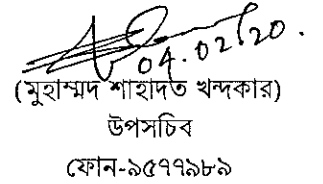 04.02.20.
(মুহাম্মদ শাহাদত খন্দকার)
উপসচিব
ফোন-৯৫৭৭৯৮৯